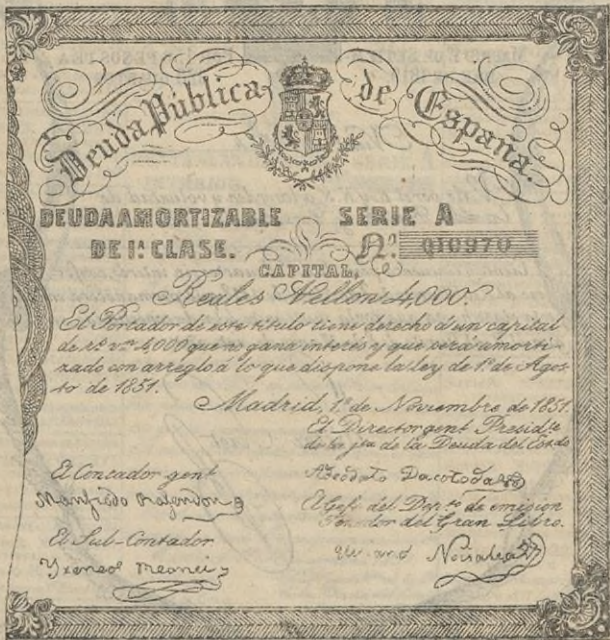 Deuda Pública de España.
DEUDA AMORTIZABLE SERIE A
DE 1ª CLASE. Nº. 010970
CAPITAL,
Reales Vellon 4,000.
El Portador de este título tiene derecho á un capital
de rs. vn. 4,000 que no gana interés y que será amorti-
zado con arreglo á lo que dispone la ley de 1º de Agos-
to de 1851.
Madrid, 1º de Noviembre de 1851.
El Director gent Presid.te
de la jta de la Deuda del Estado
El Contador gent
Manfredo
El Gefe del Dep.to de emision
Tenedor del Gran Libro.
El Sub-Contador